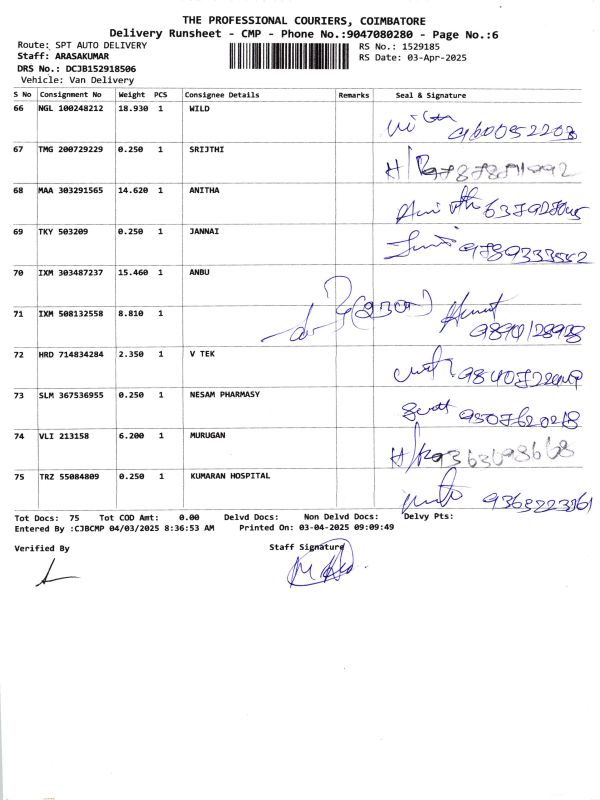 THE PROFESSIONAL COURIERS, COIMBATORE
Delivery Runsheet - CMP - Phone No.:9047080280 - Page No.:6
Route: SPT AUTO DELIVERY
RS No.: 1529185
Staff: ARASAKUMAR
RS Date: 03-Apr-2025
DRS No.: DCJB152918506
Vehicle: Van Delivery
S No Consignment No Weight PCS Consignee Details Remarks Seal & Signature
66 NGL 100248212 18.930 1 WILD
9600952203
67 TMG 200729229 0.250 1 SRIJTHI
68 MAA 303291565 14.620 1 ANITHA
69 TKY 503209 0.250 1 JANNAI
9789333542
70 IXM 303487237 15.460 1 ANBU
71 IXM 508132558 8.810 1
72 HRD 714834284 2.350 1 V TEK
73 SLM 367536955 0.250 1 NESAM PHARMASY
9507620218
74 VLI 213158 6.200 1 MURUGAN
9363698668
75 TRZ 55084809 0.250 1 KUMARAN HOSPITAL
9363223161
Tot Docs: 75 Tot COD Amt: 0.00 Delvd Docs: Non Delvd Docs: Delvy Pts:
Entered By :CJBCMP 04/03/2025 8:36:53 AM Printed On: 03-04-2025 09:09:49
Verified By Staff Signature